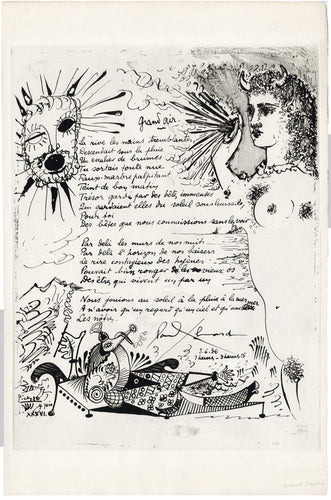 Grand air
La rive les mains tremblantes
Descendait sous la pluie
Un escalier de brumes
Tu sortais toute nue
Faux marbre palpitant
Teint de bon matin
Trésor gardé par des bêtes immenses
Qui gardaient elles du soleil sous leurs ailes
Pour toi
Des bêtes que nous connaissions sans les voir
Par delà les murs de nos nuits
Par delà l'horizon de nos baisers
Le rire contagieux des hyènes
Pouvait bien ronger les vieux os
Des êtres qui vivent un par un
Nous jouions au soleil à la pluie à la mer
A n'avoir qu'un regard qu'un ciel et qu'une mer
Les nôtres
Paul Eluard
3.6.36
3 heures - 3 heures 15
Picasso
4 juin
XXXVI